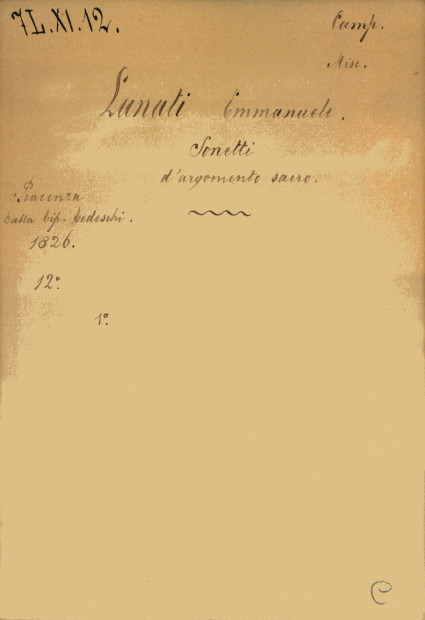 7L.XI.12.
Camp.
Misc.
Lunati Emmanuele.
Sonetti
d'argomento sacro.
Piacenza
Dalla Tip. Tedeschi.
1826.
12°.
1°.
C